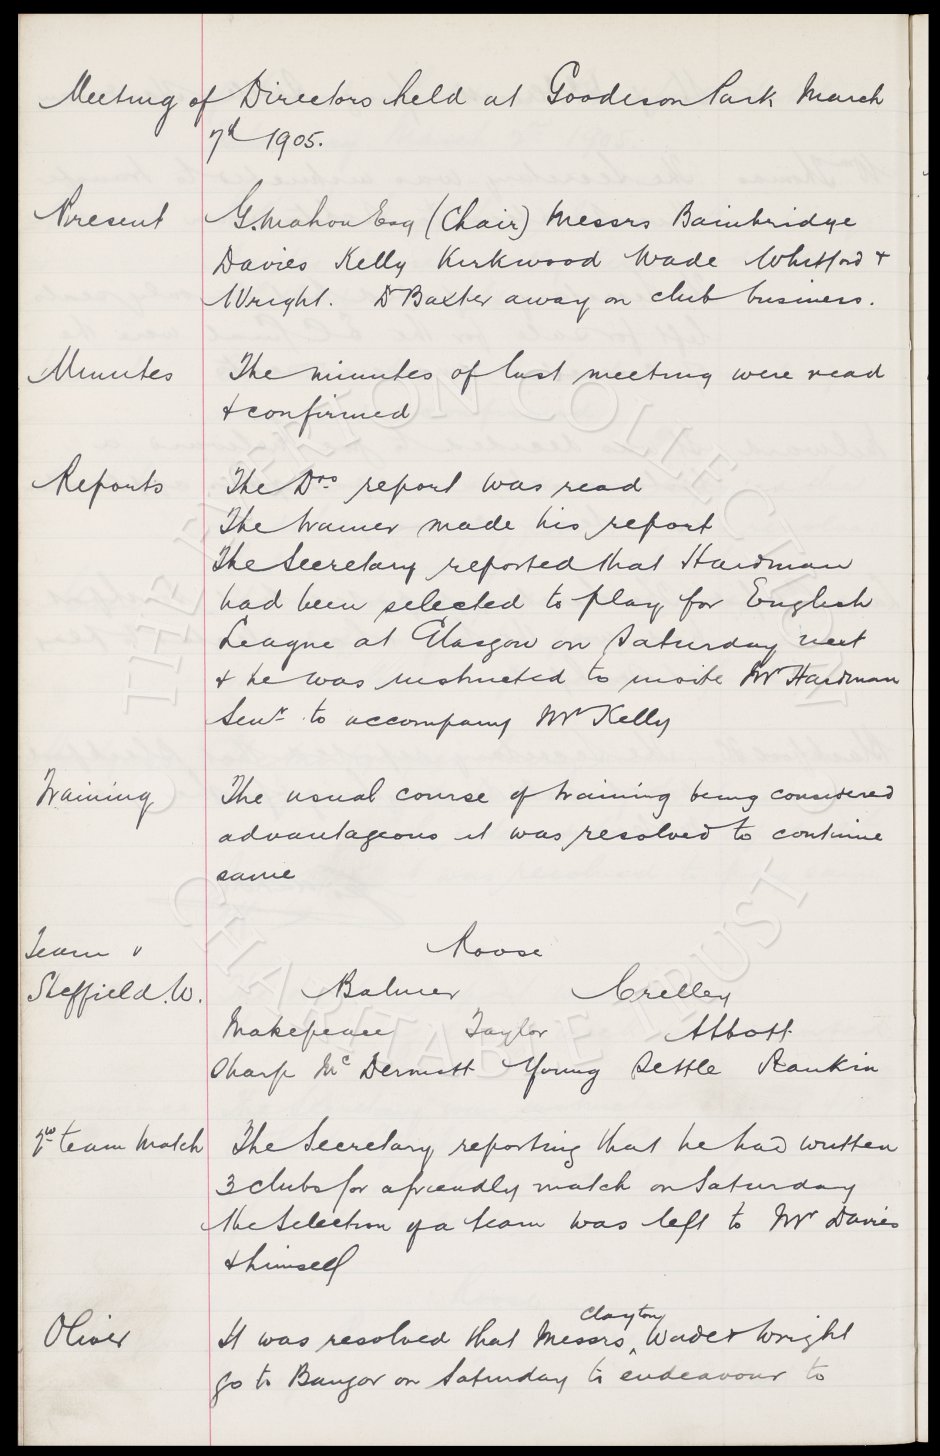 Meeting of Directors held at Goodison Park March
7th 1905.
Present G. Mahon Esq (Chair) Messrs Bainbridge
Davies Kelly Kirkwood Wade Whitford &
Wright. Dr Baxter away on club business.
Minutes The minutes of last meeting were read
& confirmed
Reports The Drs report was read
The trainer made his report
The Secretary reported that Hardman
had been selected to play for English
League at Glasgow on Saturday next
& he was instructed to invite Mr Hardman
Senr to accompany Mr Kelly
Training The usual course of training being considered
advantageous it was resolved to continue
same
Team v Roose
Sheffield. W. Balmer Crelley
Makepeace Taylor Abbott
Sharp McDermott Young Settle Rankin
2nd team match The Secretary reporting that he had written
3 clubs for a friendly match on Saturday
the Selection of a team was left to Mr Davies
& himself
Oliver It was resolved that Messrs Clayton, Wade & Wright
go to Bangor on Saturday to endeavour to
THE EVERTON COLLECTION
CHARITABLE TRUST